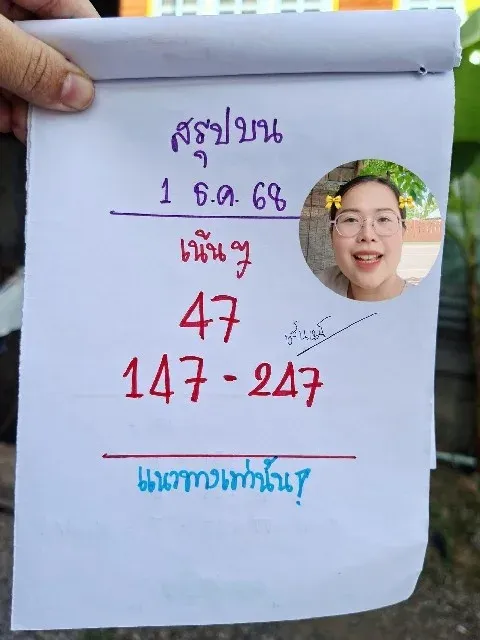 สรุปบน
1 ธ.ค. 68
เน้นๆ
47
147 - 247
แนวทางเท่านั้น!